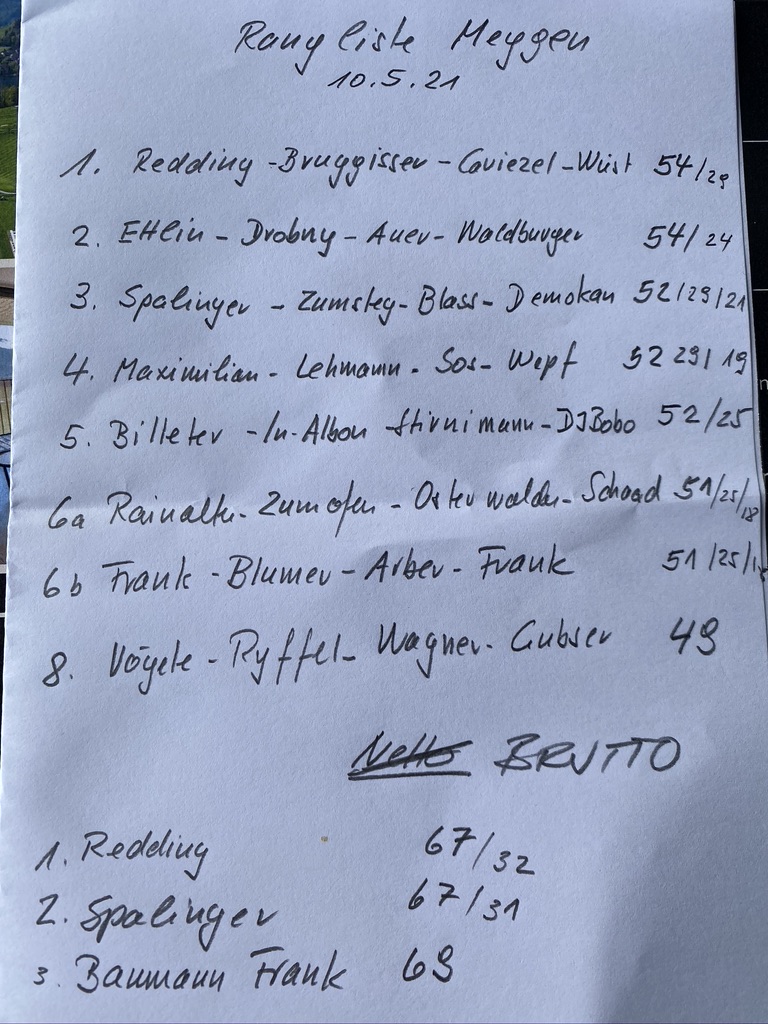 Rangliste Meggen
10.5.21
1. Redding - Bruggisser - Caviezel - Wüst 54/29
2. Ettlin - Drobny - Auer - Waldburger 54/24
3. Spalinger - Zumsteg - Blass - Demokan 52/29/21
4. Maximilian - Lehmann - Sos - Wepf 52 29/19
5. Billeter - In-Albon - Stirnimann - DJBobo 52/25
6a Rainalter - Zumofen - Osterwalder - Schaad 51/25/18
6b Frank - Blumer - Arber - Frank 51/25/
8. Vögele - Ryffel - Wagner - Gubser 49
Netto BRUTTO
1. Redding 67/32
2. Spalinger 67/31
3. Baumann Frank 69